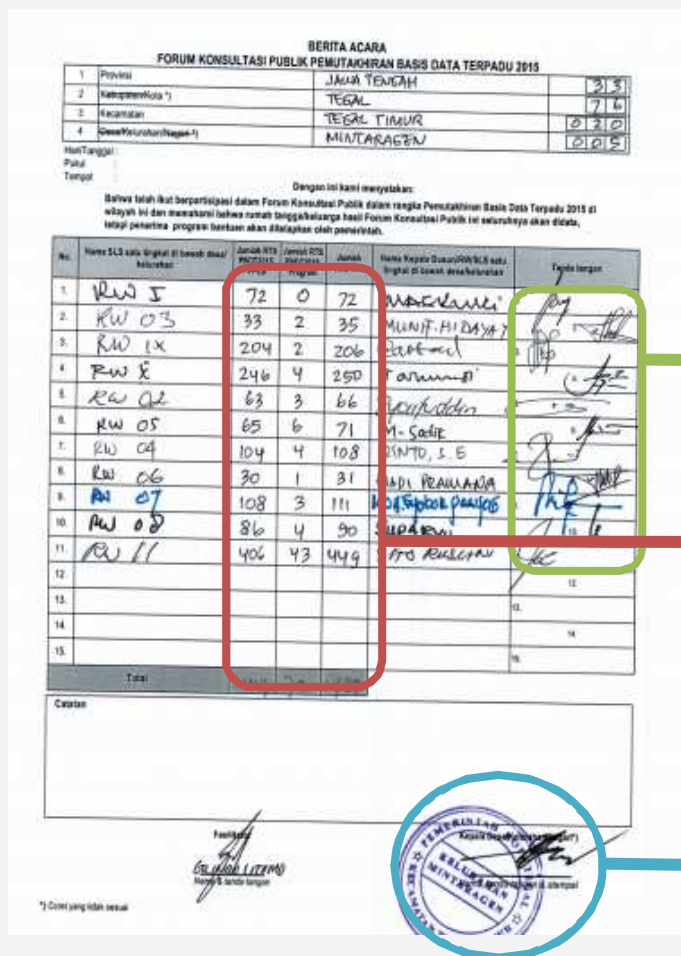 BERITA ACARA
FORUM KONSULTASI PUBLIK PEMUTAKHIRAN BASIS DATA TERPADU 2015
1 Provinsi JAWA TENGAH 3 3
2 Kabupaten/Kota *) TEGAL 7 6
3 Kecamatan TEGAL TIMUR 0 2 0
4 Desa/Kelurahan/Nagari *) MINTARAGEN 0 0 5
Hari/Tanggal :
Pukul :
Tempat :
Dengan ini kami menyatakan:
Bahwa telah ikut berpartisipasi dalam Forum Konsultasi Publik dalam rangka Pemutakhiran Basis Data Terpadu 2015 di
wilayah ini dan memahami bahwa rumah tangga/keluarga hasil Forum Konsultasi Publik ini seluruhnya akan didata,
tetapi penerima program bantuan akan ditetapkan oleh pemerintah.
No. Nama SLS satu tingkat di bawah desa/kelurahan Jumlah RTS Jumlah RTS Program Jumlah Nama Kepala Dusun/RW/SLS satu tingkat di bawah desa/kelurahan Tanda tangan
1. RW I 72 0 72
2. RW 03 33 2 35 MUNIF. HIDAYAT
3. RW IX 204 2 206
4. RW X 246 4 250
5. RW 02 63 3 66 Syaifuddin
6. RW 05 65 6 71 M. Sadik
7. RW 04 104 4 108 RINTO, S.E
8. RW 06 30 1 31 HADI PRAMANA
9. RW 07 108 3 111
10. RW 08 86 4 90
11. RW 11 406 43 449
12. 12.
13. 13.
14. 14.
15. 15.
Total
Catatan
Fasilitator
Nama & tanda tangan
KELURAHAN
MINTARAGEN
*) Coret yang tidak sesuai